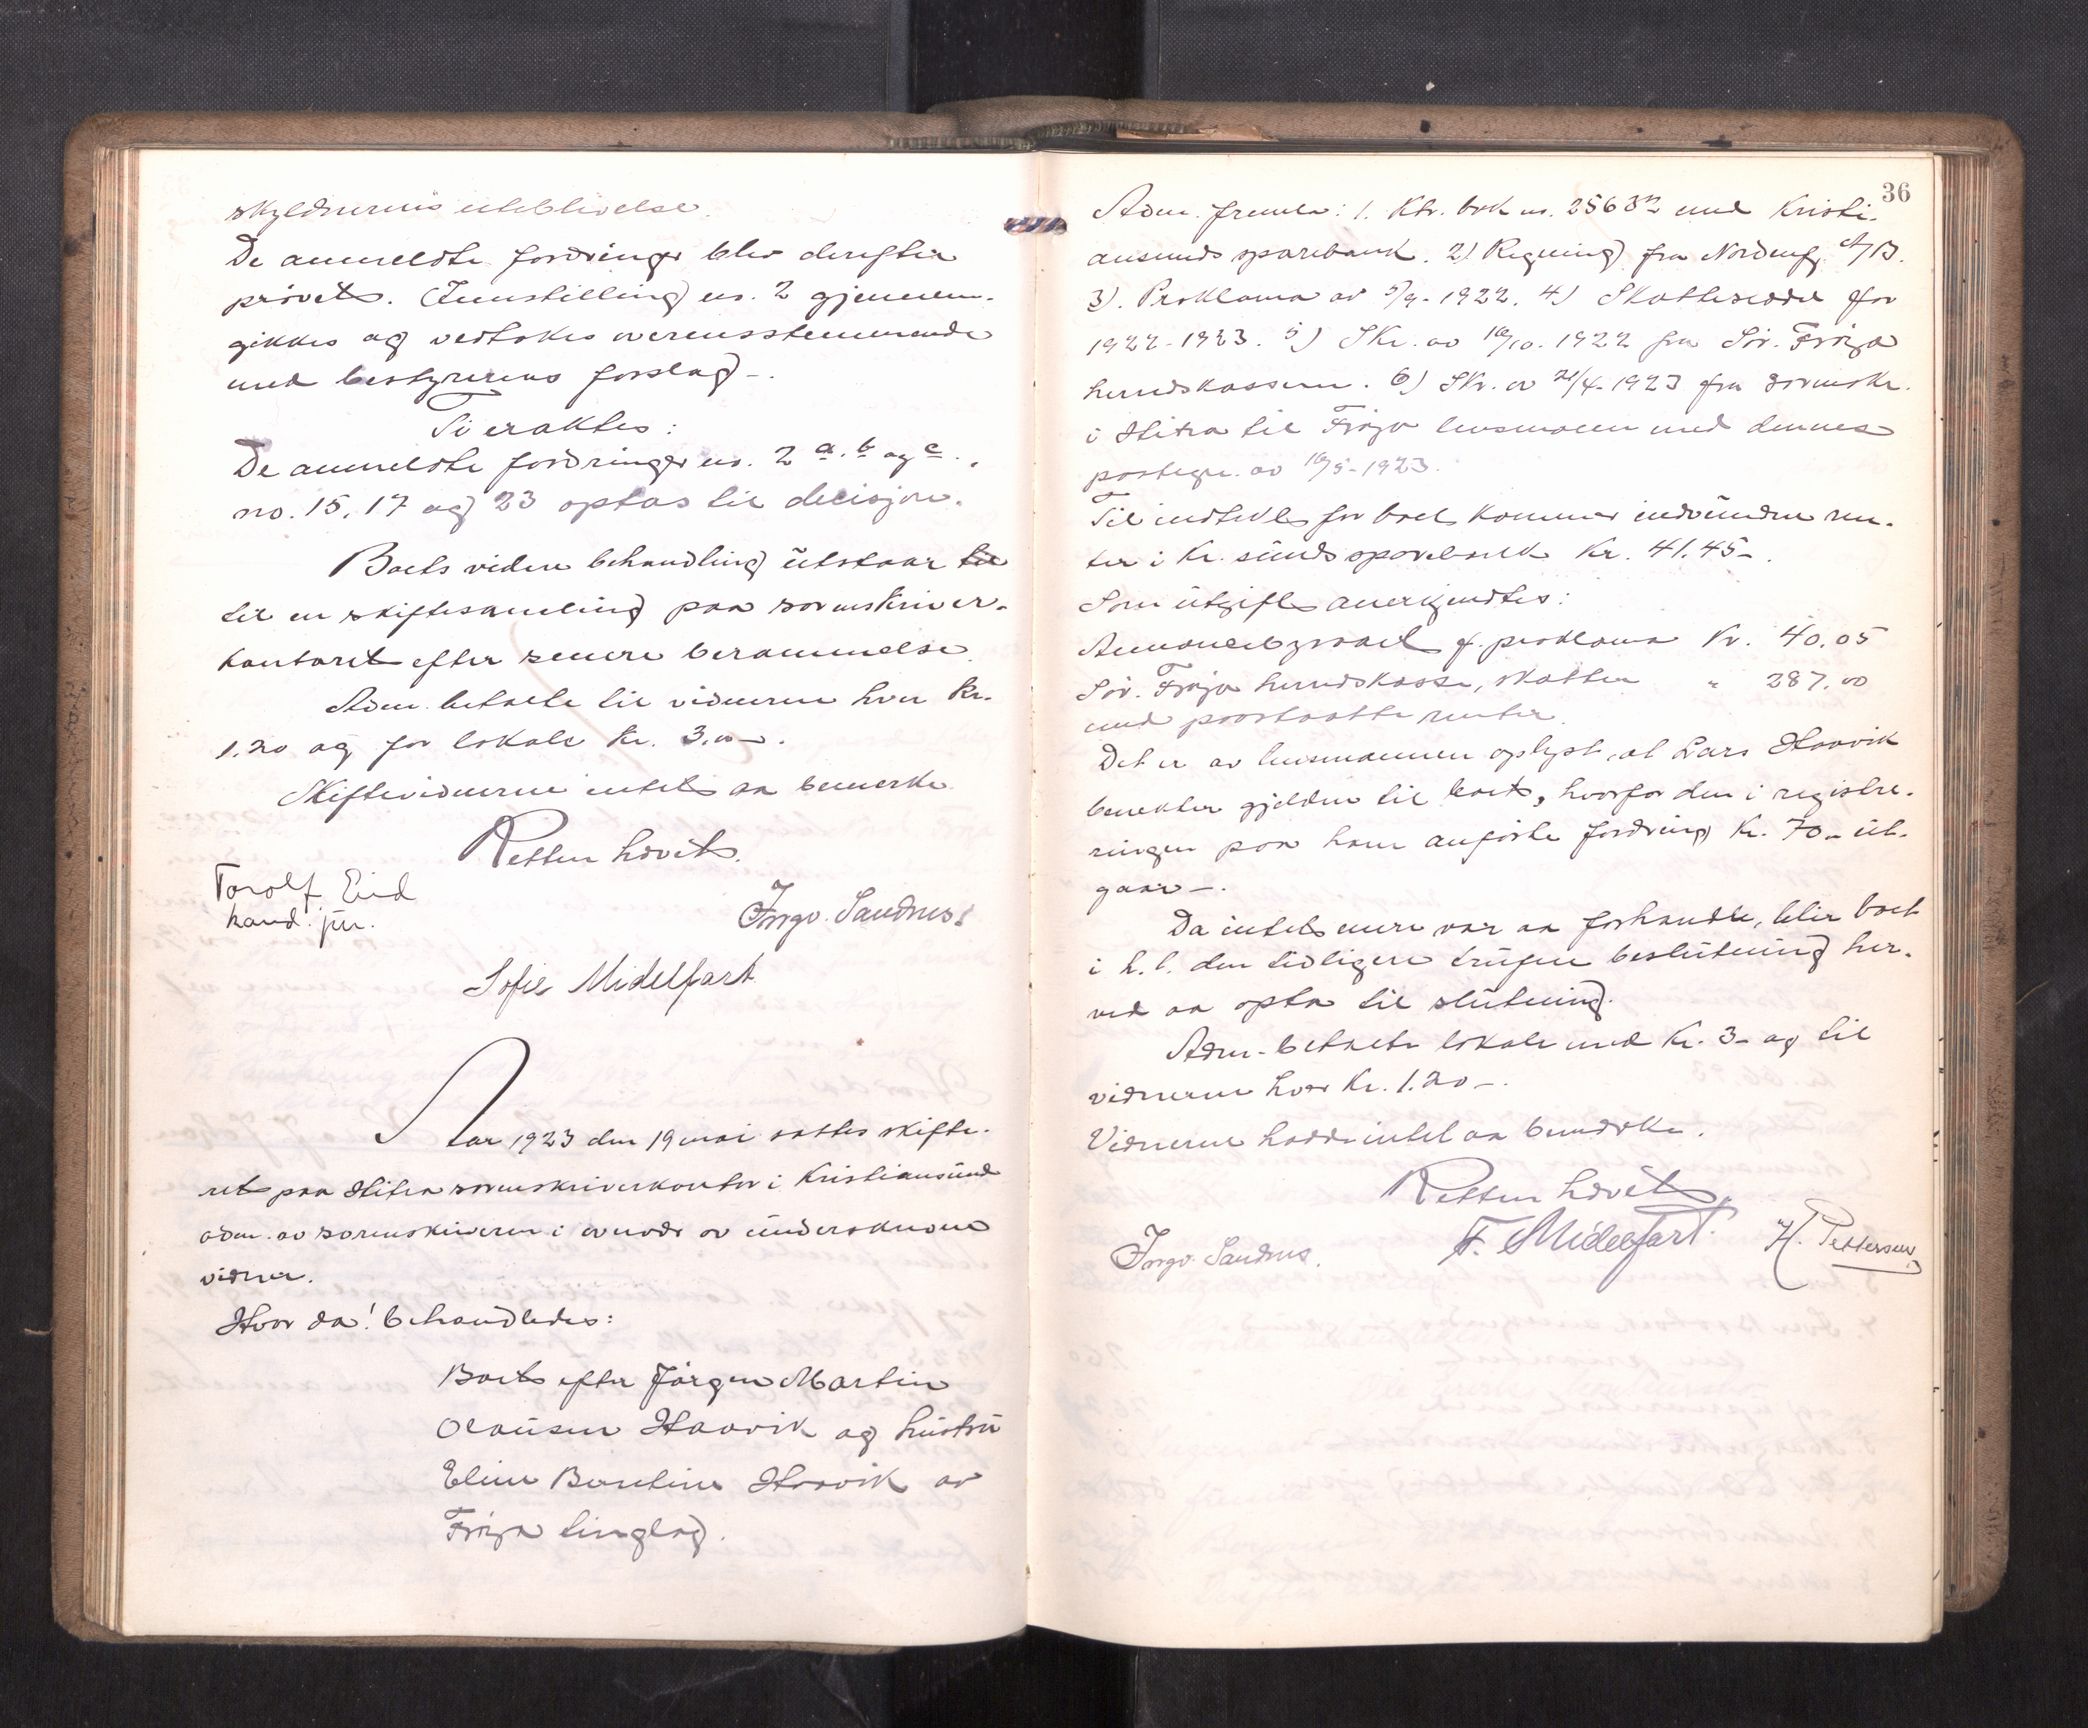 skyldnerens uteblivelse.
De anmeldte fordringer blev derefter
prøvet. Innstilling no. 2 gjennem-
gikkes og vedtokes overensstemmende
med bestyrerens forslag -.
Ti eraktes:
De anmeldte fordringer no. 2 a. b og c.,
no. 15, 17 og 23 optas til decisjon.
Boets videre behandling utstaar til
til en skiftesamling paa sorenskriver-
kontoret efter senere berammelse.
Adm. betalte til vidnerne hver kr.
1.20 og for lokale kr. 3.00 -.
Skiftevidnerne intet aa bemerke.
Retten hævet.
Torolf Eid
kand. jur.
Ingv. Sandnes
Sofie Midelfart
Aar 1923 den 19 mai sattes skifte-
ret paa Hitra sorenskriverkontor i Kristiansund
adm. av sorenskriveren i overvær av underskrevne
vidner.
Hvor da! behandledes:
Boet efter Jørgen Martin
Olausen Haavik og hustru
Eline Berntine Haavik av
Frøya tinglag.
36
Adm. fremla: 1. Ktr. bok no. 25632 med Kristi-
ansunds sparebank. 2) Regning fra Nordenf.
3). Proklama av 5/9-1922. 4) Skatteseddel for
1922-1923. 5) Skr. av 16/10. 1922 fra Sør. Frøya
herredskassen. 6) Skr. av 21/4-1923 fra sorenskr.
i Hitra til Frøya lensmann med dennes
paategn. av 16/5-1923.
Til indtekt for boet kommer indvundne ren-
ter i Kr. sunds sparebank Kr. 41.45 -.
Som utgift anerkjendtes:
Annoncebyraaet f. proklama Kr. 40.05
Sør. Frøya herredskasse, skatter " 287.00
med paaløpte renter.
Det er av lensmannen oplyst, at Lars Haavik
benekter gjelden til boet, hvorfor den i registre-
ringen paa ham anførte fordring Kr. 70 - ut-
gaar -.
Da intet mere var aa forhandle, blir boet
i h. t. den tidligere trufne beslutning her-
ved aa opta til slutning.
Adm. betalte lokale med Kr. 3 - og til
vidnerne hver Kr. 1.20 -.
Vidnerne hadde intet aa bemerke.
Retten hævet.
Ingv. Sandnes.
F. Midelfart.
H. Pettersen